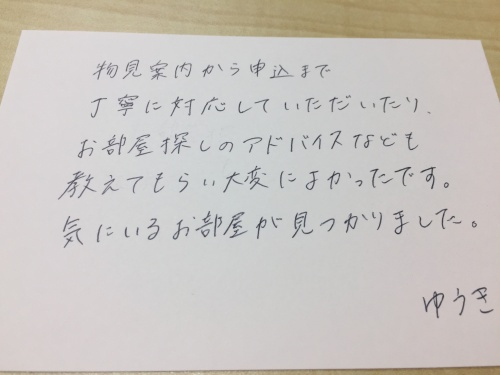 物見案内から申込まで
丁寧に対応していただいたり、
お部屋探しのアドバイスなども
教えてもらい大変によかったです。
気にいるお部屋が見つかりました。
ゆうき